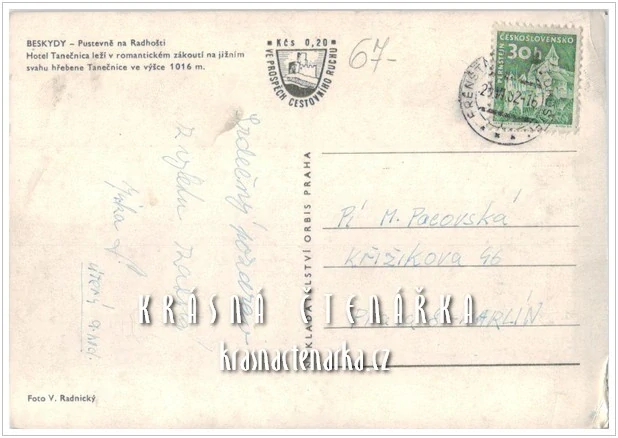 BESKYDY – Pustevně na Radhošti
Hotel Tanečnica leží v romantickém zákoutí na jižním
svahu hřebene Tanečnice ve výšce 1016 m.
Kčs 0,20
VE PROSPĚCH CESTOVNÍHO RUCHU
67-
ČESKOSLOVENSKO
30h
PERNŠTEJN
Srdečný pozdrav
z výletu
NAKLADATELSTVÍ ORBIS PRAHA
Pí M. Pacovská
Křižíkova 46
KARLÍN
KRÁSNÁ ČTENÁŘKA
krasnactenarka.cz
Foto V. Radnický